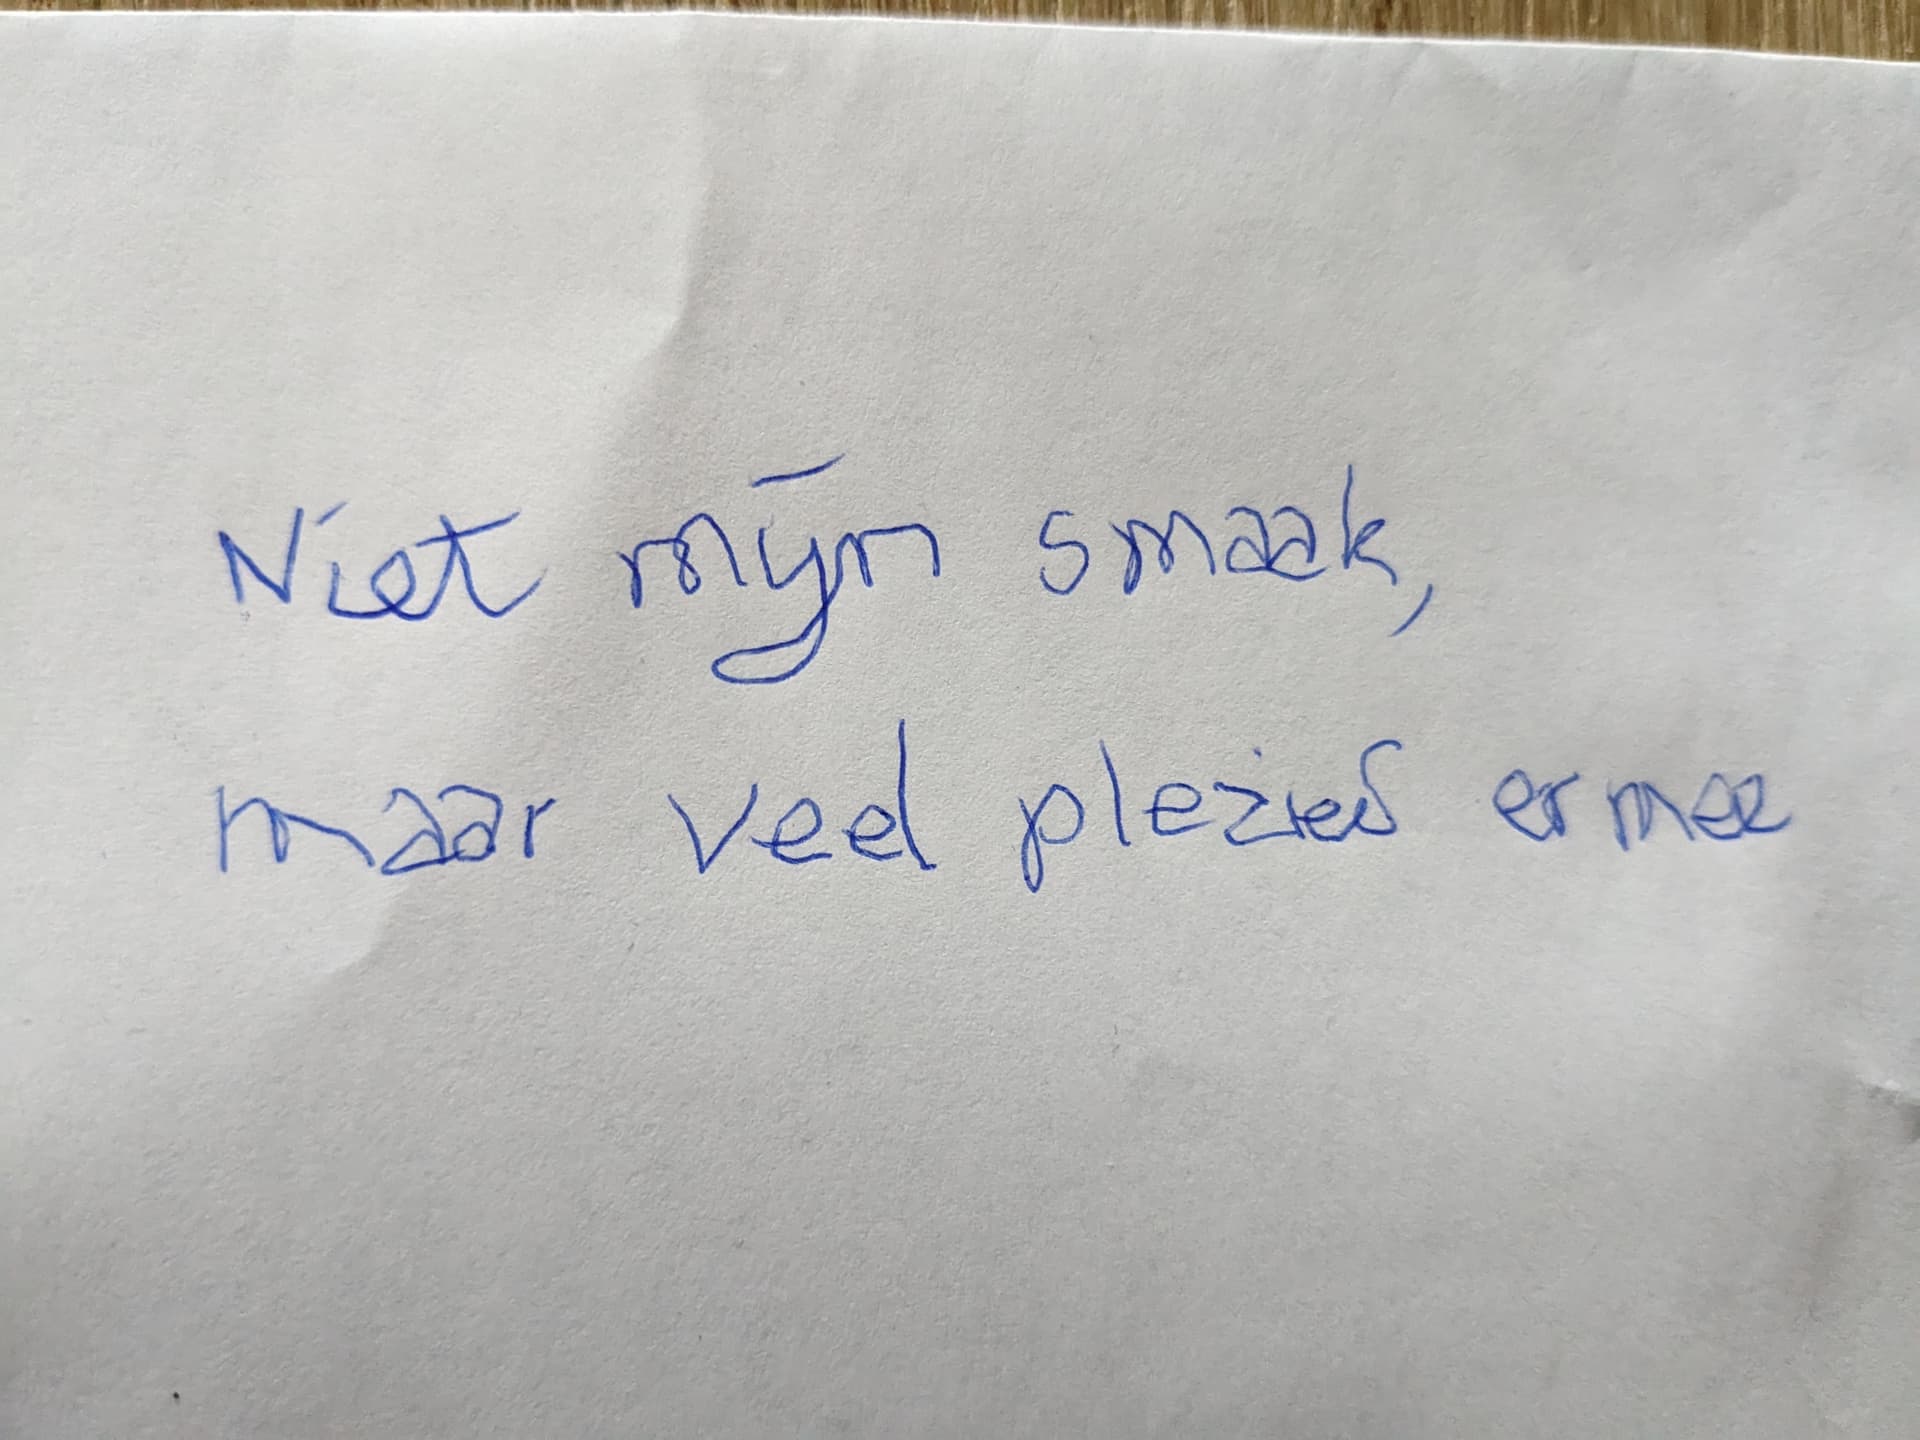 Niet mijn smaak,
maar veel plezier ermee